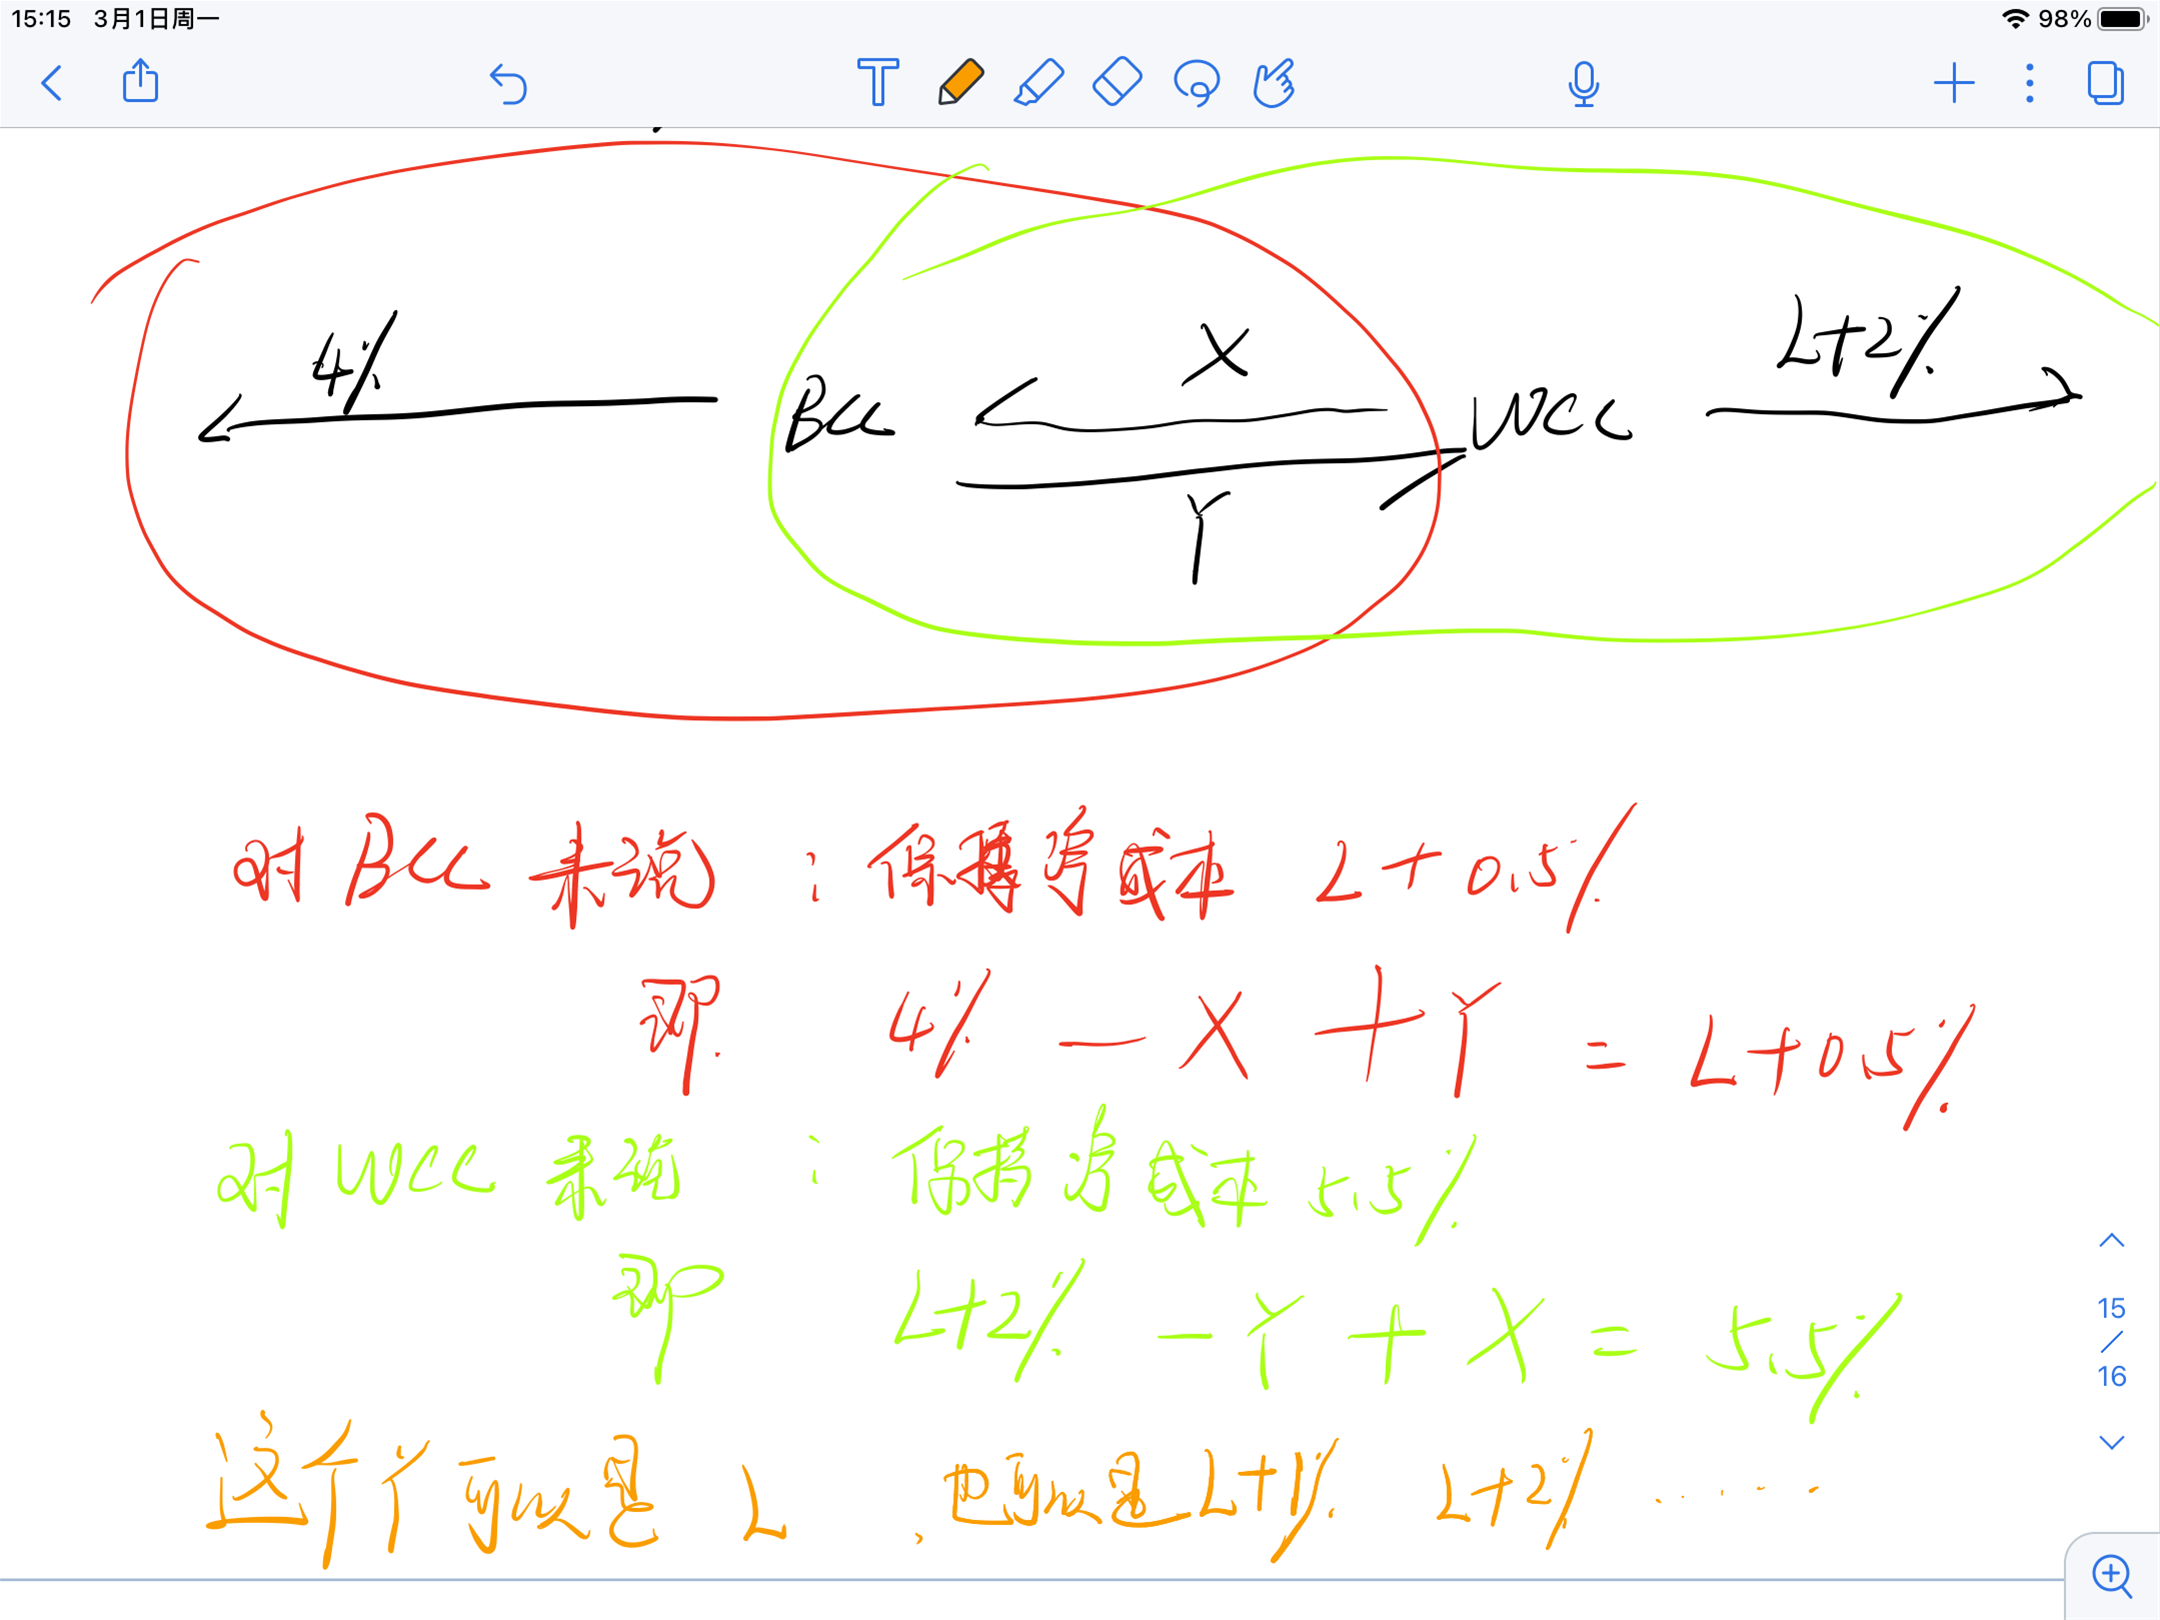 15:15 3月1日周一 98%
4% X L+2%
BCC WCC
Y
对BCC来说：保持筹成本 L+0.5%
即. 4% — X + Y = L+0.5%
对WCC来说：保持筹成本5.5%
即 L+2% - Y + X = 5.5%
这个Y可以是L，也可以是L+1%. L+2% ......
15
/
16